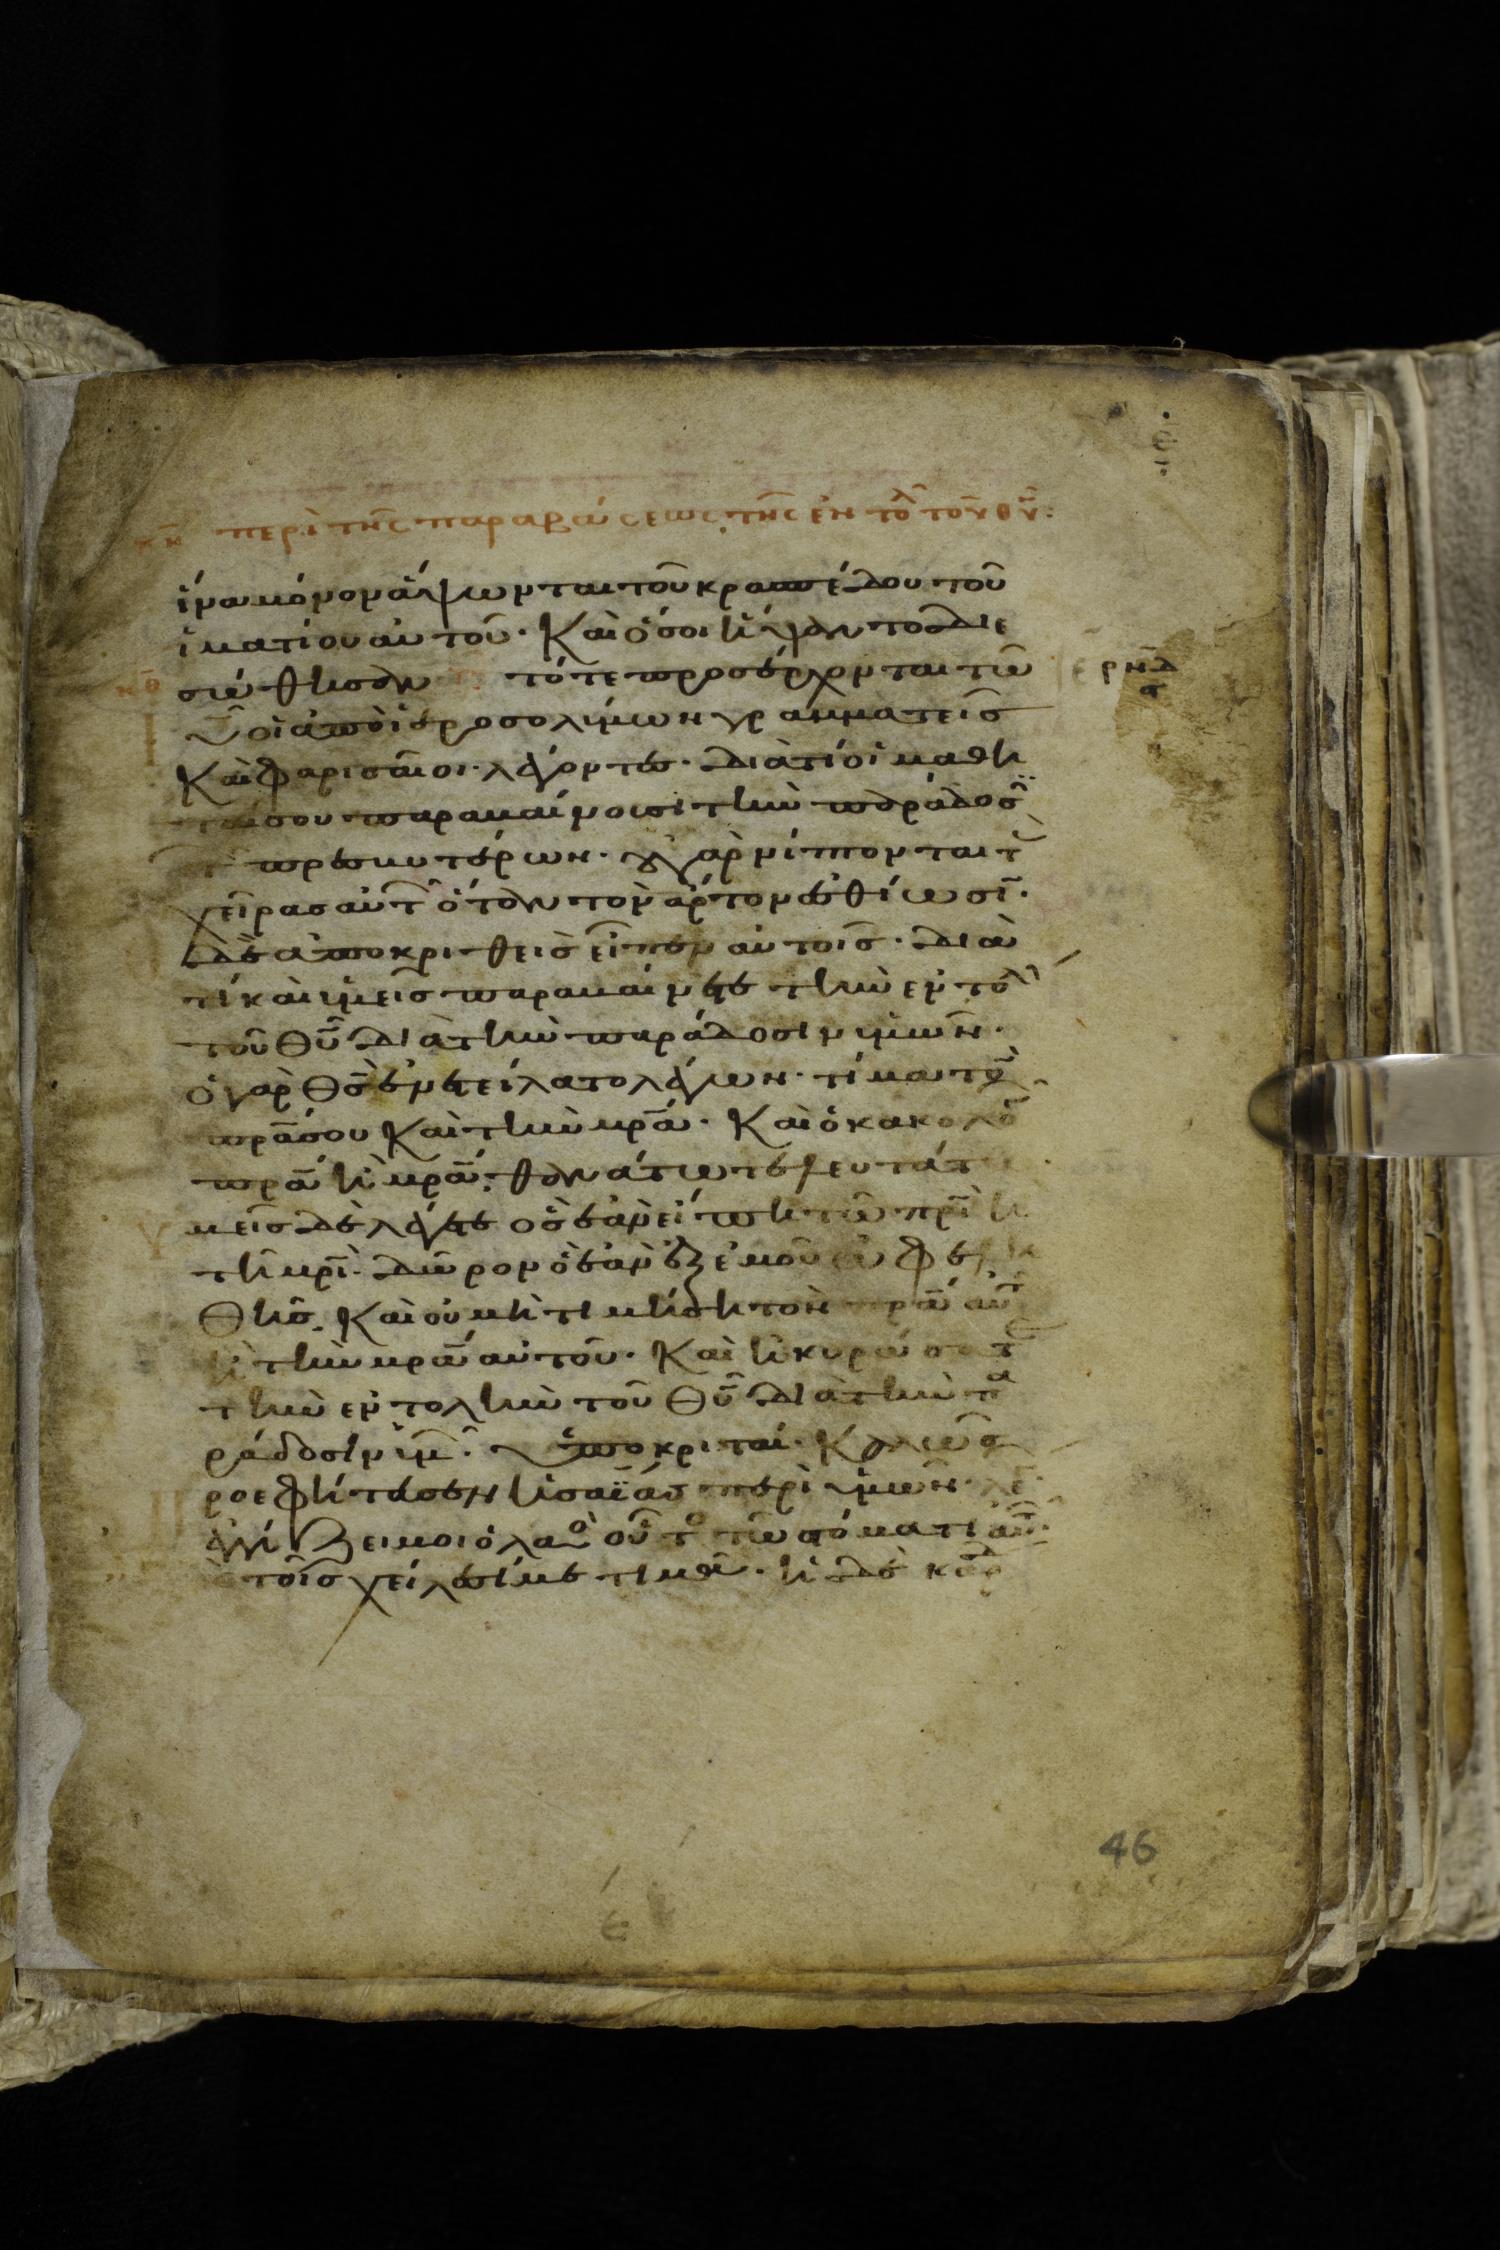 περὶ τῆς παραβάσεως τῆς ἐντολ τοῦ θυ·
ἵνα μόνον ἅψωνται τοῦ κρασπέδου τοῦ
ἱματίου αὐτοῦ· Καὶ ὅσοι ἥψαντο διε
σώθησαν τότε προσέρχονται τῶ
ιυ οἱ ἀπὸ ἱεροσολύμων γραμματεῖς
Καὶ φαρισαῖοι λέγοντες· διατί οἱ μαθη
ταί σου παραβαίνουσι τὴν παράδοσ
τ πρεσβυτέρων· οὐ γὰρ νίπτονται τ
χεῖρας αὐτ ὅταν τὸν ἄρτον ἐσθίωσι·
δὲ ἀποκριθεὶς εἶπεν αὐτοῖς· διὰ
τί καὶ ὑμεῖς παραβαίνετε τὴν ἐντολ
τοῦ θυ διὰ τὴν παράδοσιν ὑμῶν·
ὁ γὰρ θς ἐνετείλατο λέγων· τίμα τὸν
πρα σου Καὶ τὴν μρα· Καὶ ὁ κακολο
πρα ἢ μρα· θανάτω τελευτάτ
μεῖς δὲ λέγετε ὃς ἐὰν εἴπη τῶ πρι ἢ
τῆ μρι· δῶρον ὃ ἐὰν ἐξ ἐμοῦ ὠφελη
θῆς· Καὶ οὐ μὴ τιμήση τὸν πρα αὐτ
ἢ τὴν μρα αὐτοῦ· Καὶ ἠκυρώσατ
τὴν ἐντολὴν τοῦ θυ διὰ τὴν πα
ράδοσιν ὑμ· ὑποκριταί· Καλῶς
ροεφήτευσεν ἡσαΐας περὶ ὑμῶν· λε
ἐγγίζει μοι ὁ λαὸ οὗτο τῶ στόματι αὐ·
τοῖς χείλεσί με τιμᾶ· ἡ δὲ καρδ
46